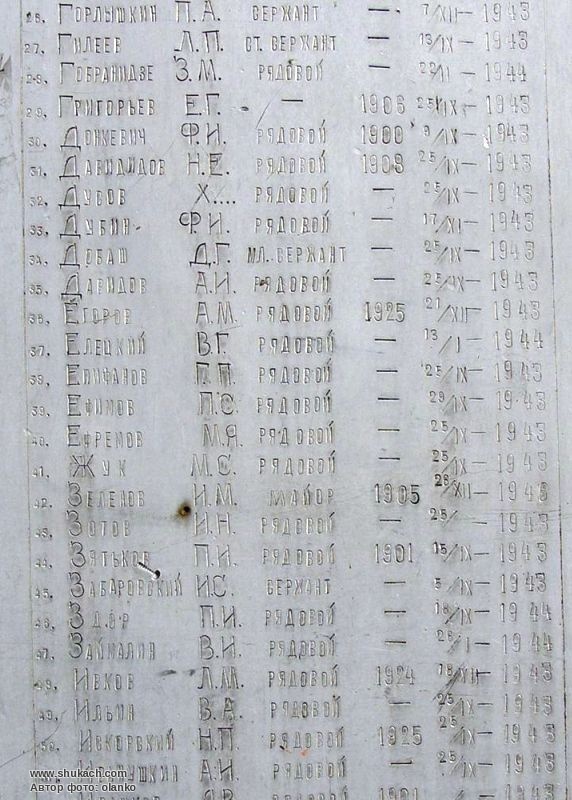 26. Горлушкин П.А. сержант — 7/XII — 1943
27. Гилеев Л.П. ст. сержант — 13/IX — 1943
28. Гобранидзе З.М. рядовой — 22/II — 1944
29. Григорьев Е.Г. — 1906 25/IX — 1943
30. Донкевич Ф.И. рядовой 1900 9/IX — 1943
31. Давидидов Н.Е. рядовой 1908 25/IX — 1943
32. Дубов Х.... рядовой — 25/IX — 1943
33. Дубин Ф.И. рядовой — 17/XI — 1943
34. Добаш Д.Г. мл. сержант — 25/IX — 1943
35. Давидов А.И. рядовой — 25/IX — 1943
36. Егоров А.М. рядовой 1925 21/XII — 1943
37. Елецкий В.Г. рядовой — 13/I — 1944
38. Епифанов Г.П. рядовой — 25/IX — 1943
39. Ефимов П.С. рядовой — 29/IX — 1943
40. Ефремов М.Я. рядовой — 25/IX — 1943
41. Жук М.С. рядовой — 25/IX — 1943
42. Зеленов И.М. майор 1905 26/XII — 1943
43. Зотов И.Н. рядовой — 25/ — 1943
44. Зятьков П.И. рядовой 1901 15/IX — 1943
45. Забаровский И.С. сержант — 5/IX — 1943
46. Здор П.И. рядовой — 18/IX — 1944
47. Займалин В.И. рядовой — 26/I — 1944
48. Ивков Л.М. рядовой 1924 18/XII — 1943
49. Ильин В.А. рядовой — 25/IX — 1943
50. Искорский Н.П. рядовой 1925 25/IX — 1943
А.И. рядовой — 25/IX — 1943
www.shukach.com
Автор фото: olanko